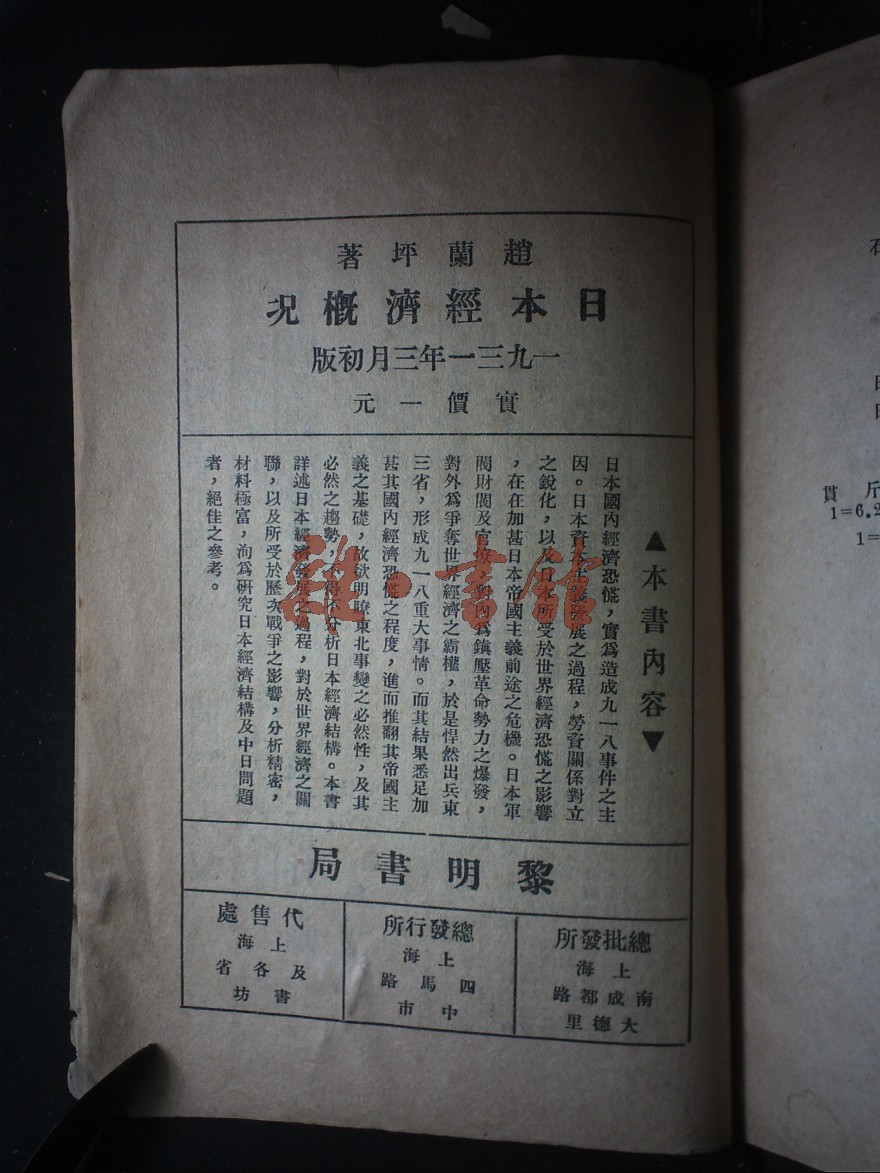 趙蘭坪著
日本經濟概況
一九三一年三月初版
實價一元
▲本書內容▼
日本國內經濟恐慌，實爲造成九一八事件之主
因。日本資本主義發展之過程，勞資關係對立
之銳化，以及日本所受於世界經濟恐慌之影響
，在在加甚日本帝國主義前途之危機。日本軍
閥財閥及官僚，對內爲鎮壓革命勢力之爆發，
對外爲爭奪世界經濟之霸權，於是悍然出兵東
三省，形成九一八重大事情。而其結果悉足加
甚其國內經濟恐慌之程度，進而推翻其帝國主
義之基礎，故欲明瞭東北事變之必然性，及其
必然之趨勢，不得不分析日本經濟結構。本書
詳述日本經濟發展之過程，對於世界經濟之關
聯，以及所受於歷次戰爭之影響，分析精密，
材料極富，洵爲研究日本經濟結構及中日問題
者，絕佳之參考。
黎明書局
總批發所
上海
南成都路
大德里
總發行所
上海
四馬路
中市
代售處
上海
及各省
書坊
雜·書館
石
斤
貫
1=6.2
1=